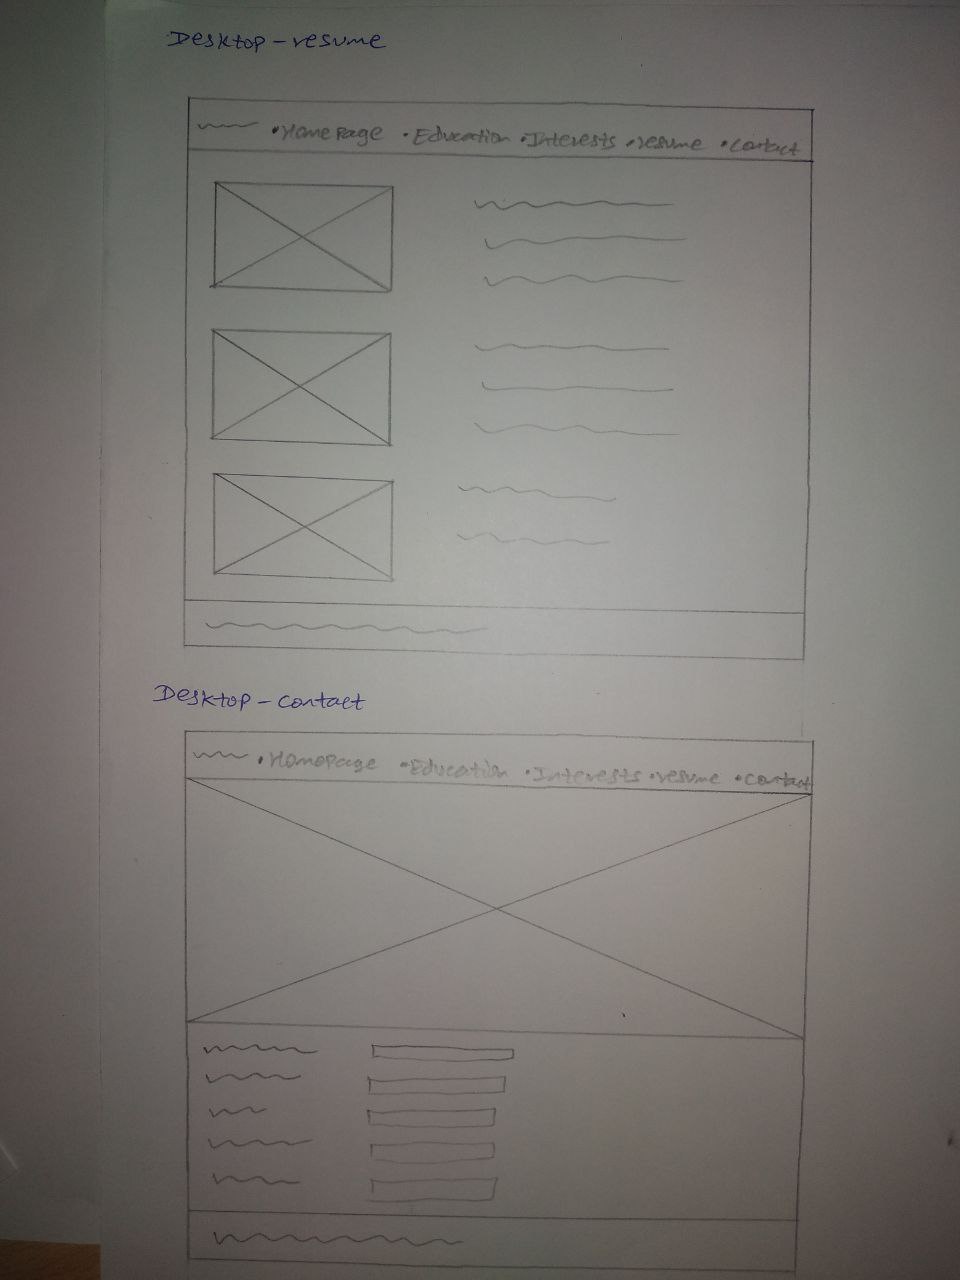 Desktop - resume
• Homepage • Education • Interests • resume • contact
Desktop - contact
• Homepage • Education • Interests • resume • contact